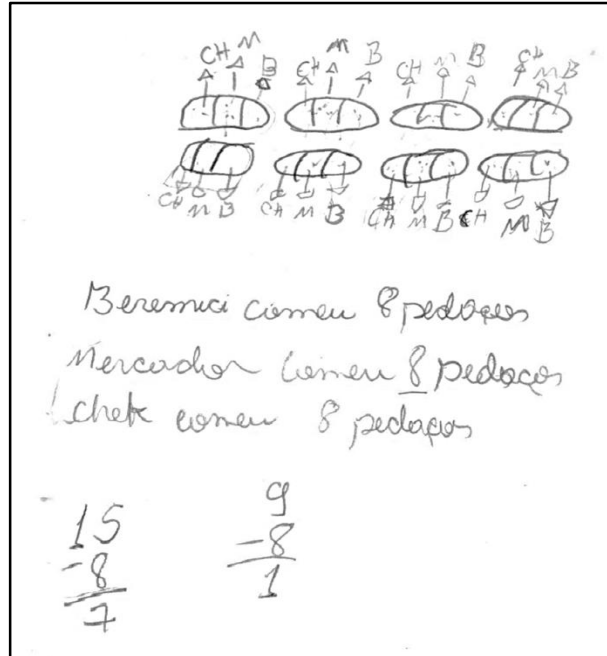 CH M B CH M B CH M B CH M B
CH M B CH M B CH M B CH M B
Beremici comeu 8 pedaços
Mercador comeu 8 pedaços
chek comeu 8 pedaços
15 9
-8 -8
7 1